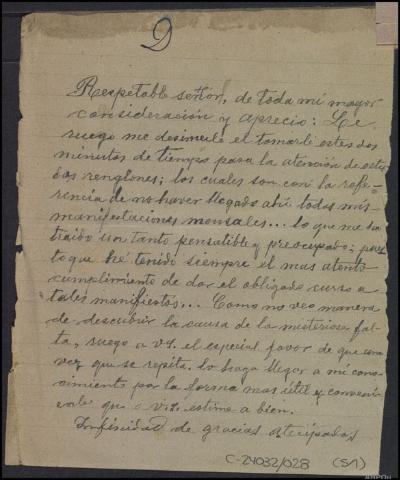 D
Respetable señor, de toda mi mayor
consideración y aprecio: Le
ruego me desimule el tomarle estos dos
minutos de tiempo para la atención de estos
dos renglones; los cuales son con la refe-
rencia de no haver llegado ahí todas mis
manifestaciones mensales... lo que me ha
traido un tanto pensatible y preocupado; pues
to que hé tenido siempre el mas atento
cumplimiento de dar el obligado curso a
tales manifiestos... Como no veo manera
de descubrir la causa de la misteriosa fal-
ta, ruego a vs. el especial favor de que una
vez que se repita. lo haga llegar a mi cono-
cimiento por la forma mas útil y conveni-
ente que a v.s. estime a bien.
Infinidad de gracias aticipadas
C-24032/028 (S/1)